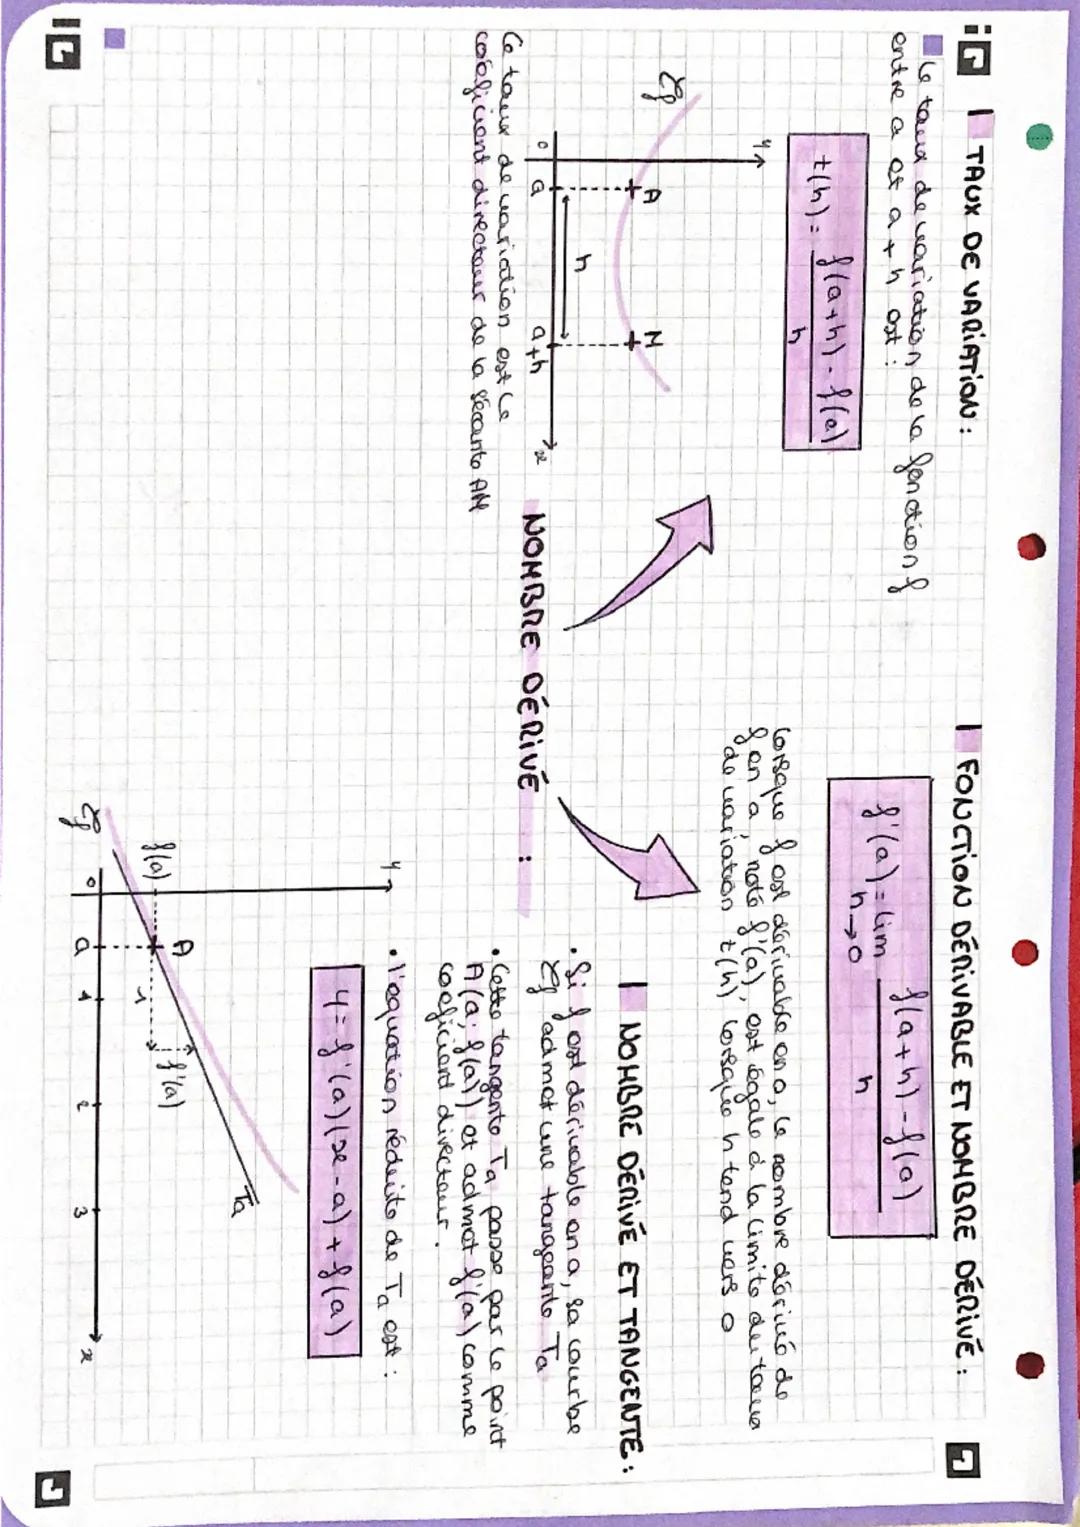 TAUX DE VARIATION :
Le taux de variation de la fonction f
entre a et a + h est :
t(h) = f(a+h) - f(a)
h
y
Cf
A
M
h
o
a
a+h
x
Ce taux de variation est le
coéficient directeur de la sécante AM
NOMBRE DÉRIVÉ :
FONCTION DÉRIVABLE ET NOMBRE DÉRIVÉ :
f'(a) = lim f(a+h) - f(a)
h→0 h
Lorsque f est dérivable en a, le nombre dérivé de
f en a, noté f'(a), est égale à la limite du taux
de variation t(h) lorsque h tend vers 0
NOMBRE DÉRIVÉ ET TANGENTE :
• Si f est dérivable en a, sa courbe
Cf admet une tangeante Ta
• Cette tangente Ta passe par le point
A(a; f(a)) et admet f'(a) comme
coéficient directeur.
• l'équation réduite de Ta est :
y = f'(a)(x - a) + f(a)
y
A
Ta
f(a)
1
f'(a)
Cf
o
a
1
2
3
x